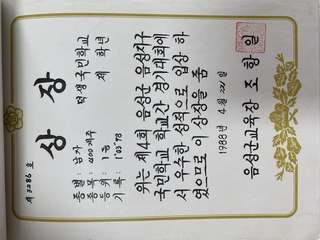 제 3286 호
상장
덕생국민학교
제 학년
종별: 남자
종목: 400계주
등위: 1위
기록: 1'03"78
위는 제4회 음성군 음성지구
국민학교 학교간 경기대회에
서 우수한 성적으로 입상 하
였으므로 이 상장을 줌
1988년 4월 22일
음성군교육장 조항